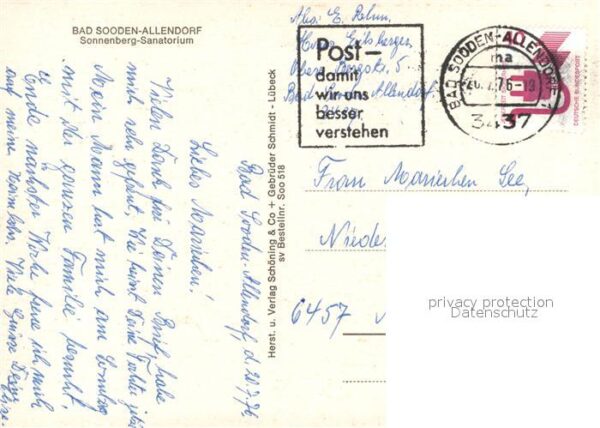 BAD SOODEN-ALLENDORF
Sonnenberg-Sanatorium
Abs. E.
Hans
Obere 5
Bad Sooden Allendorf
3437
Post-
damit
wir uns
besser
verstehen
BAD SOODEN-ALLENDORF 1
ma
20.7.76-18
3437
DEUTSCHE BUNDESPOST
Herst. u. Verlag Schöning & Co + Gebrüder Schmidt - Lübeck
sv Bestellnr. Soo 518
Frau Mariechen See,
Niede
6457
privacy protection
Datenschutz
Bad Sooden-Allendorf, d. 20.7.76
Liebes Mariechen!
Vielen Dank für Deinen Brief, habe
mich sehr gefreut. Wie kommt Deine Tochter jetzt
Mein Mann hat mich am Sonntag
mit der ganzen Familie besucht.
Ende nächster Woche freue ich mich
auf meine Heimfahrt. Viele Grüsse Deine